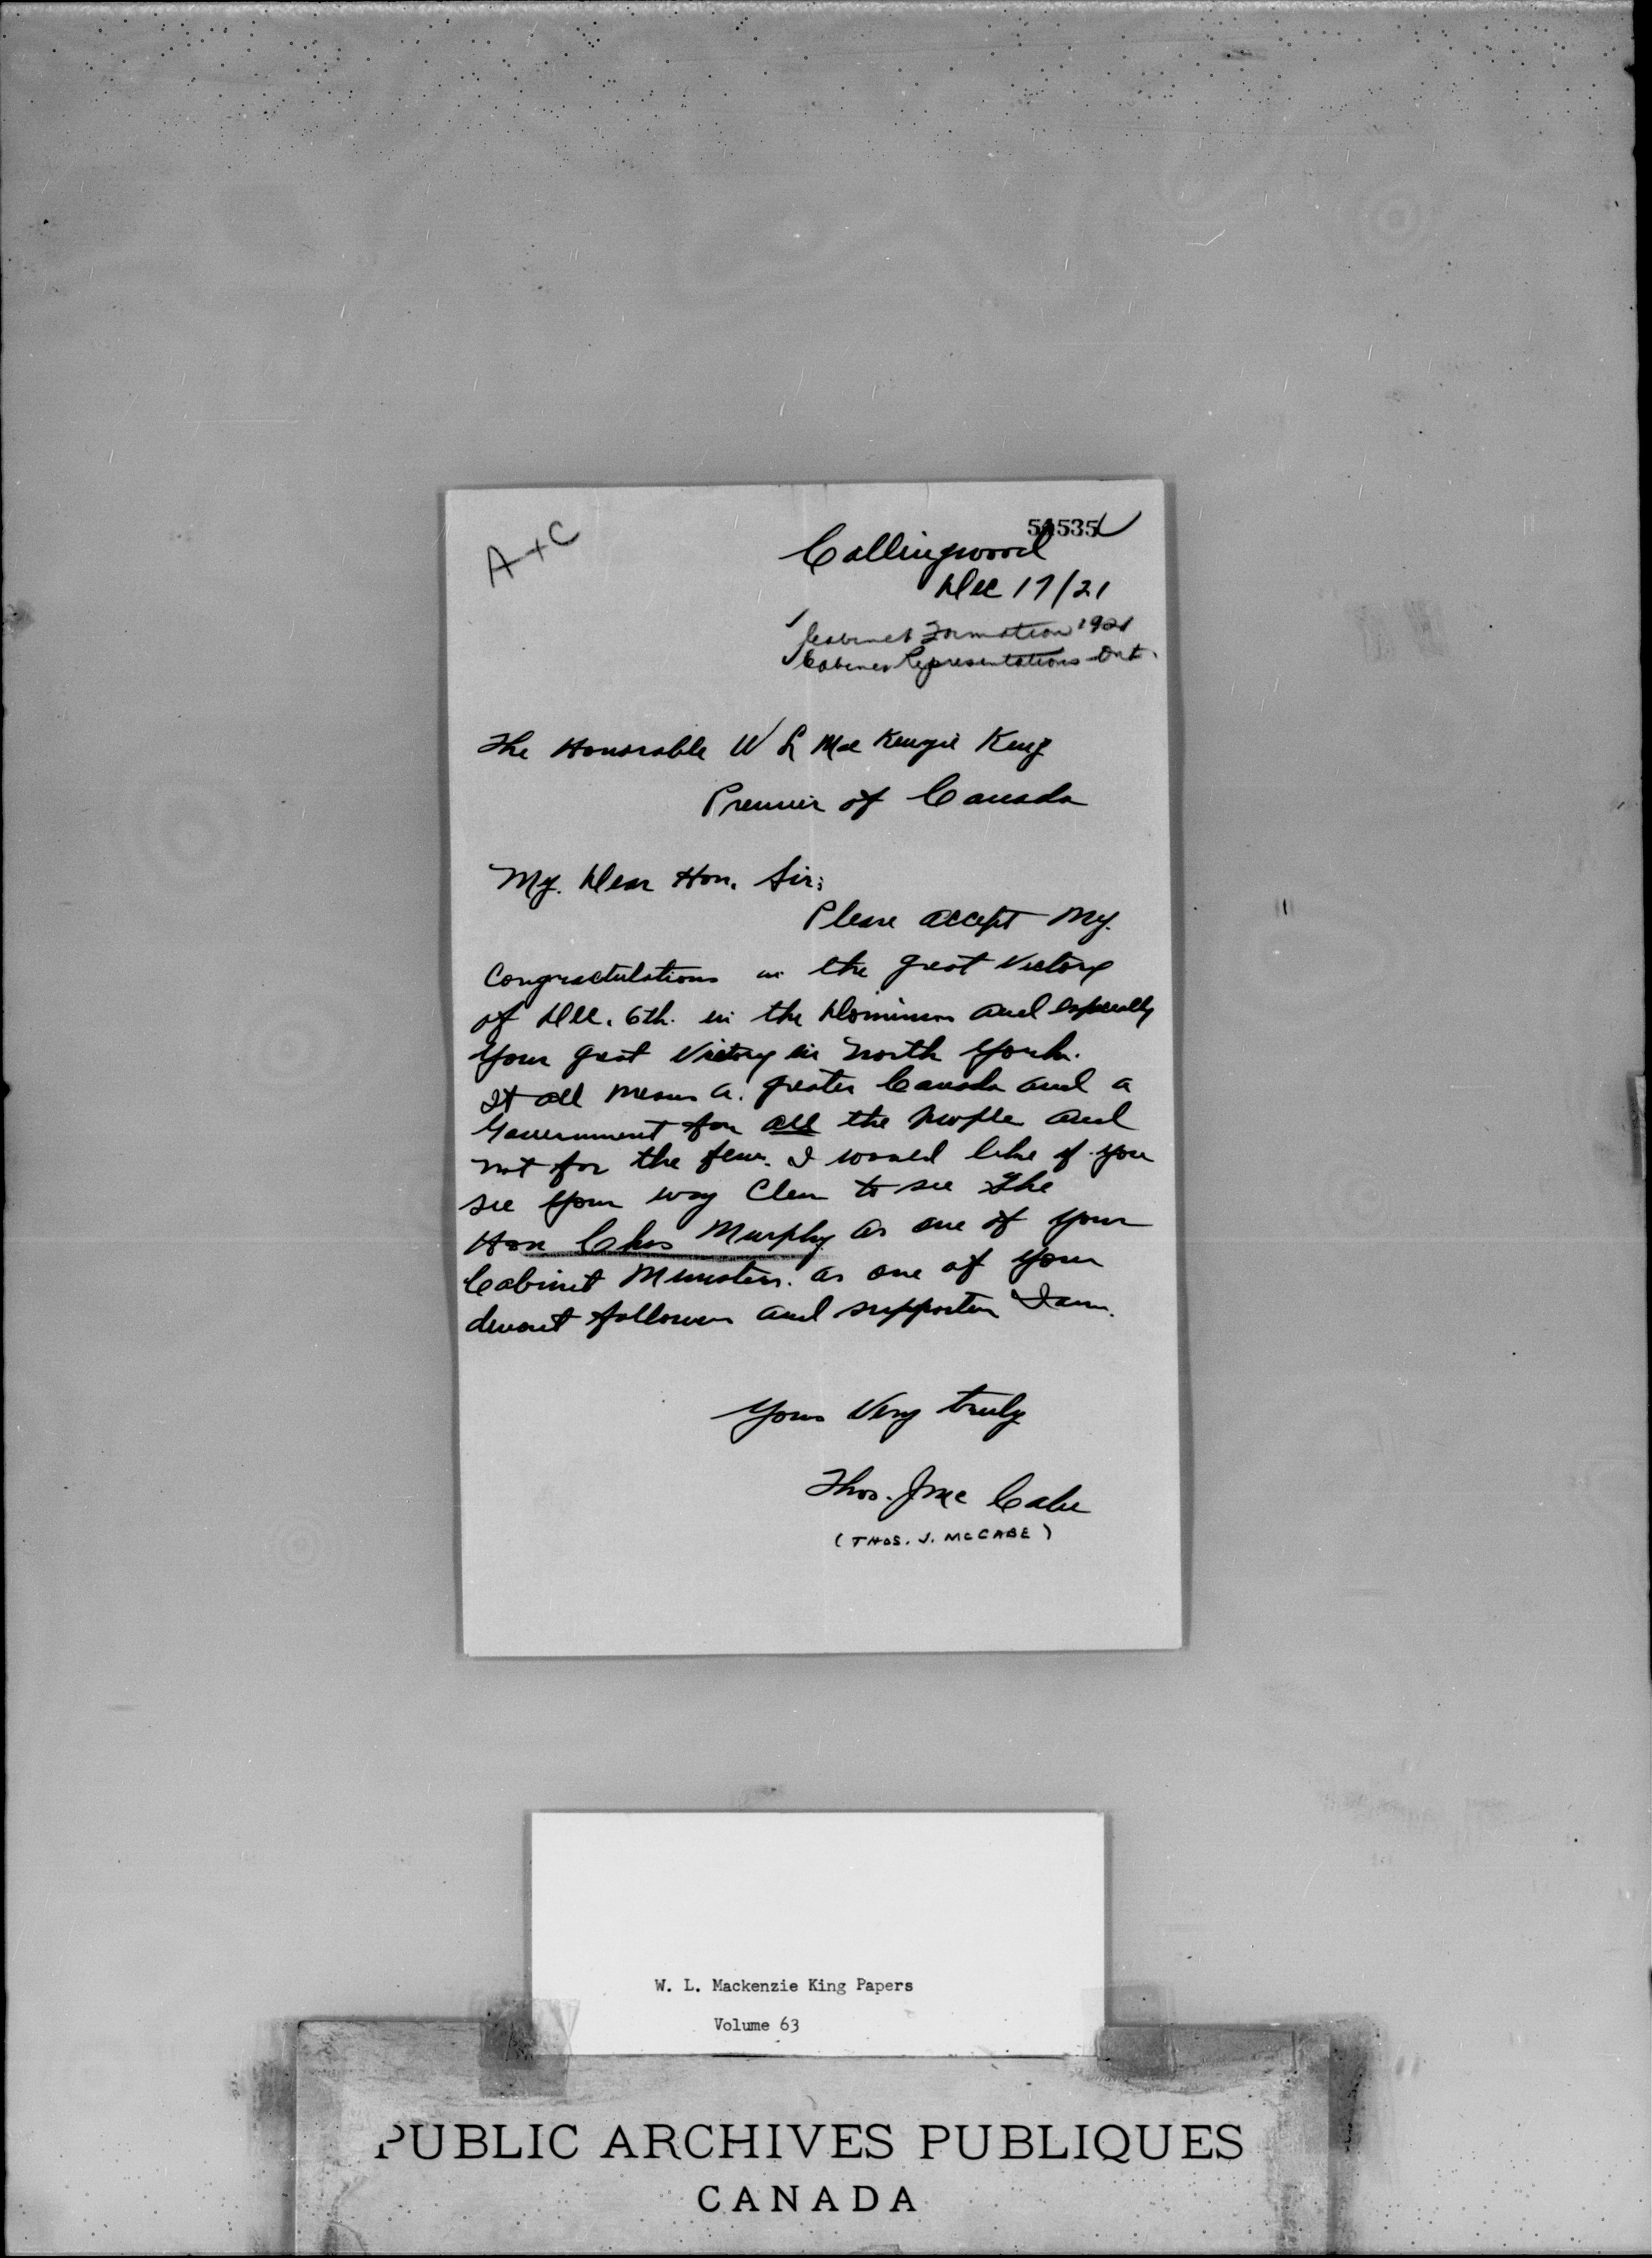 A+C
Collingwood
Dec 17/21
Cabinet Formation 1921
Cabinet Representations Ont.
The Honorable W L MacKenzie King
Premier of Canada
My. Dear Hon. Sir;
Please accept My.
Congractulations in the great Victory
of Dec. 6th. in the Dominion and especially
your great Victory in North York.
It all means a. greater Canada and a
Government for all the people and
not for the few. I would like if you
see your way clear to see The
Hon Chas Murphy as one of your
Cabinet Ministers. as one of your
devout follower and supporter I am.
Yours Very truly
Thos. J Mc Cabe
(THOS. J. McCABE)
W. L. Mackenzie King Papers
Volume 63
PUBLIC ARCHIVES PUBLIQUES
CANADA